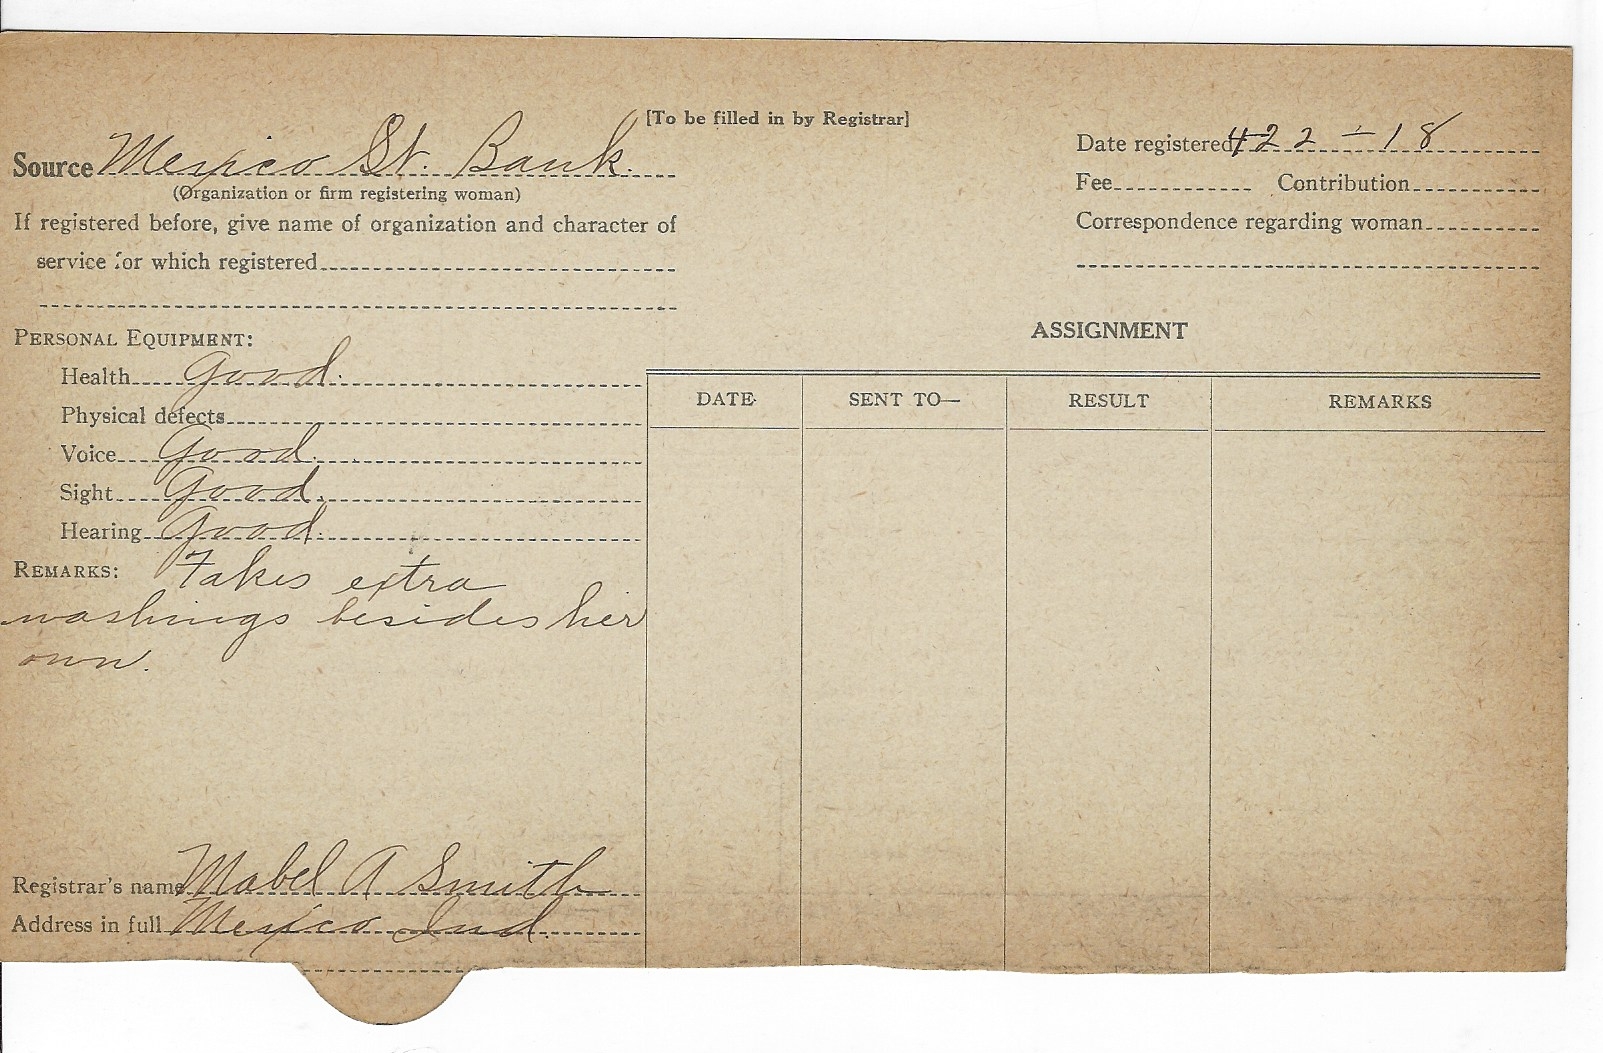 [To be filled in by Registrar]
Source Mexico St. Bank.
(Organization or firm registering woman)
If registered before, give name of organization and character of
service for which registered
Date registered 4 22 - 18
Fee Contribution
Correspondence regarding woman
PERSONAL EQUIPMENT:
Health Good.
Physical defects
Voice Good.
Sight Good.
Hearing Good.
REMARKS: Takes extra
washings besides her
own.
Registrar's name Mabel A Smith
Address in full Mexico Ind.
ASSIGNMENT
DATE SENT TO— RESULT REMARKS